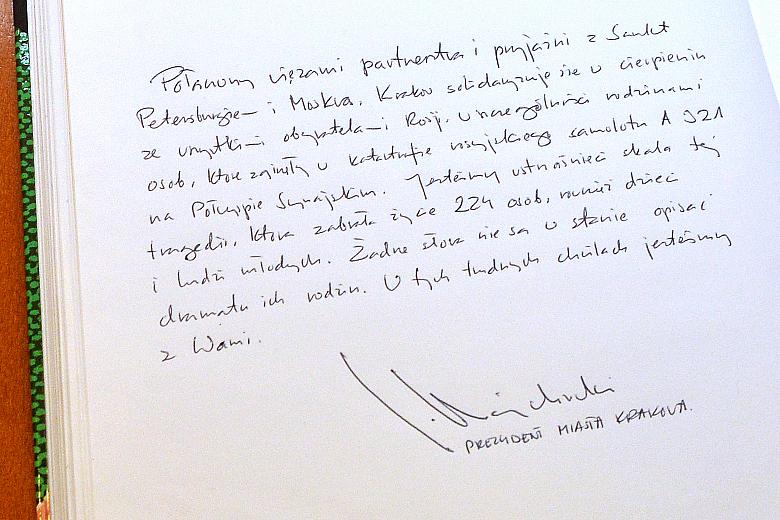 Połączony więzami partnerstwa i przyjaźni z Sankt
Petersburgiem i Moskwą, Kraków solidaryzuje się w cierpieniu
ze wszystkimi obywatelami Rosji, w szczególności rodzinami
osób, które zginęły w katastrofie rosyjskiego samolotu A 321
na Półwyspie Synajskim. Jesteśmy wstrząśnięci skalą tej
tragedii, która zabrała życie 224 osób, również dzieci
i ludzi młodych. Żadne słowa nie są w stanie opisać
dramatu ich rodzin. W tych trudnych chwilach jesteśmy
z Wami.
PREZYDENT MIASTA KRAKOWA.